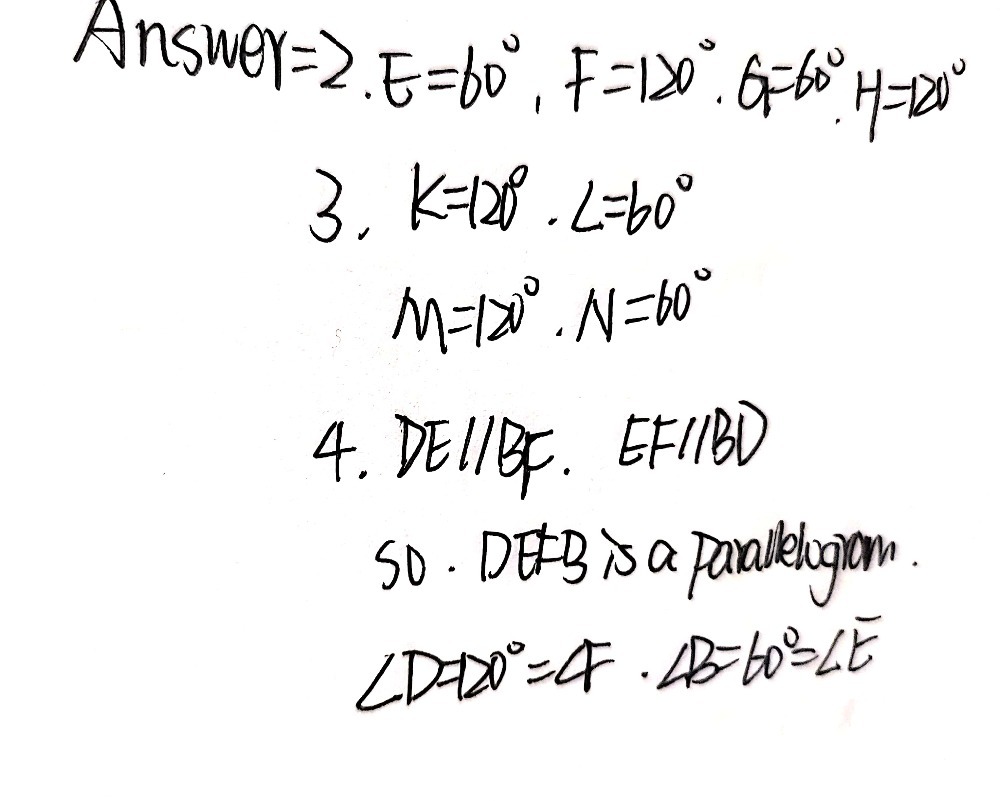 Answer=2.E=60°, F=120°. G=60°. H=120°
3. K=120°. L=60°
M=120°. N=60°
4. DE//BF. EF//BD
so. DEFB is a parallelogram.
∠D=120°=∠F. ∠B=60°=∠E